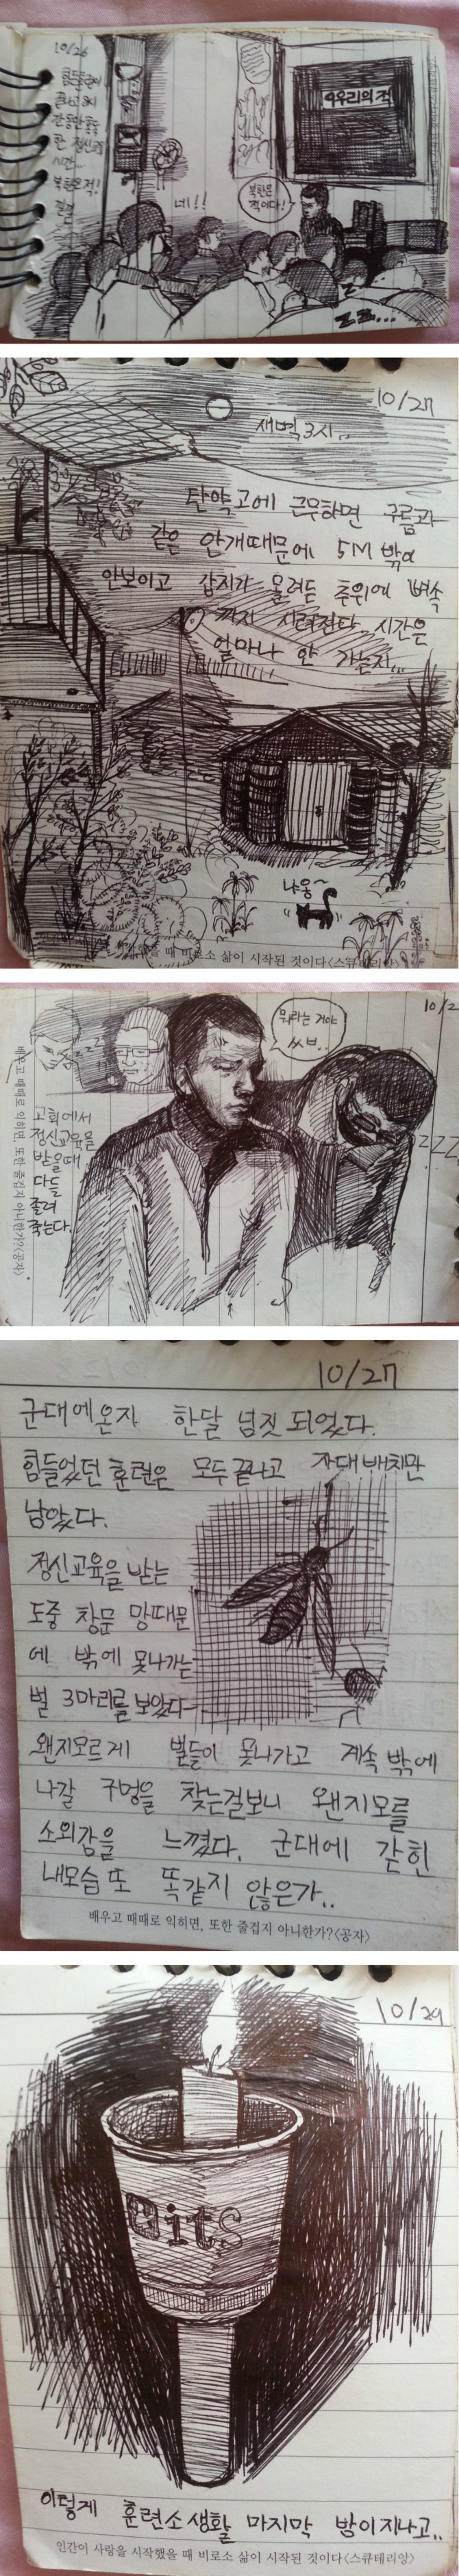 10/26
힘든훈련이
끝나고 8시
한 정신교육
시간...
북한은 적!
네!!
북한은
적이다!
우리의 적
z z z...
10/27
새벽 3시..
탄약고에 근무하면 구름과
같은 안개때문에 5M 밖에
안보이고 갑자기 몰려든 추위에 뼈속
까지 시려진다. 시간은
얼마나 안 가는지...
냐옹~
때 비로소 삶이 시작된 것이다<스큐테리앙>
10/2
뭐라는 거야
ㅆㅂ..
zzz
교회에서
정신교육을
받을때
다들
졸려
죽는다.
ZZZ
배우고 때때로 익히면, 또한 즐겁지 아니한가?<공자>
10/27
군대에온지 한달 넘짓 되었다.
힘들었던 훈련은 모두 끝나고 자대 배치만
남았다.
정신교육을 받는
도중 창문 망때문
에 밖에 못나가는
벌 3마리를 보았다
왠지모르게 벌들이 못나가고 계속 밖에
나갈 구멍을 찾는걸보니 왠지모를
소외감을 느꼈다. 군대에 갇힌
내모습또 똑같지 않은가..
배우고 때때로 익히면, 또한 즐겁지 아니한가?<공자>
10/29
이렇게 훈련소생활 마지막 밤이지나고..
인간이 사랑을 시작했을 때 비로소 삶이 시작된 것이다<스큐테리앙>